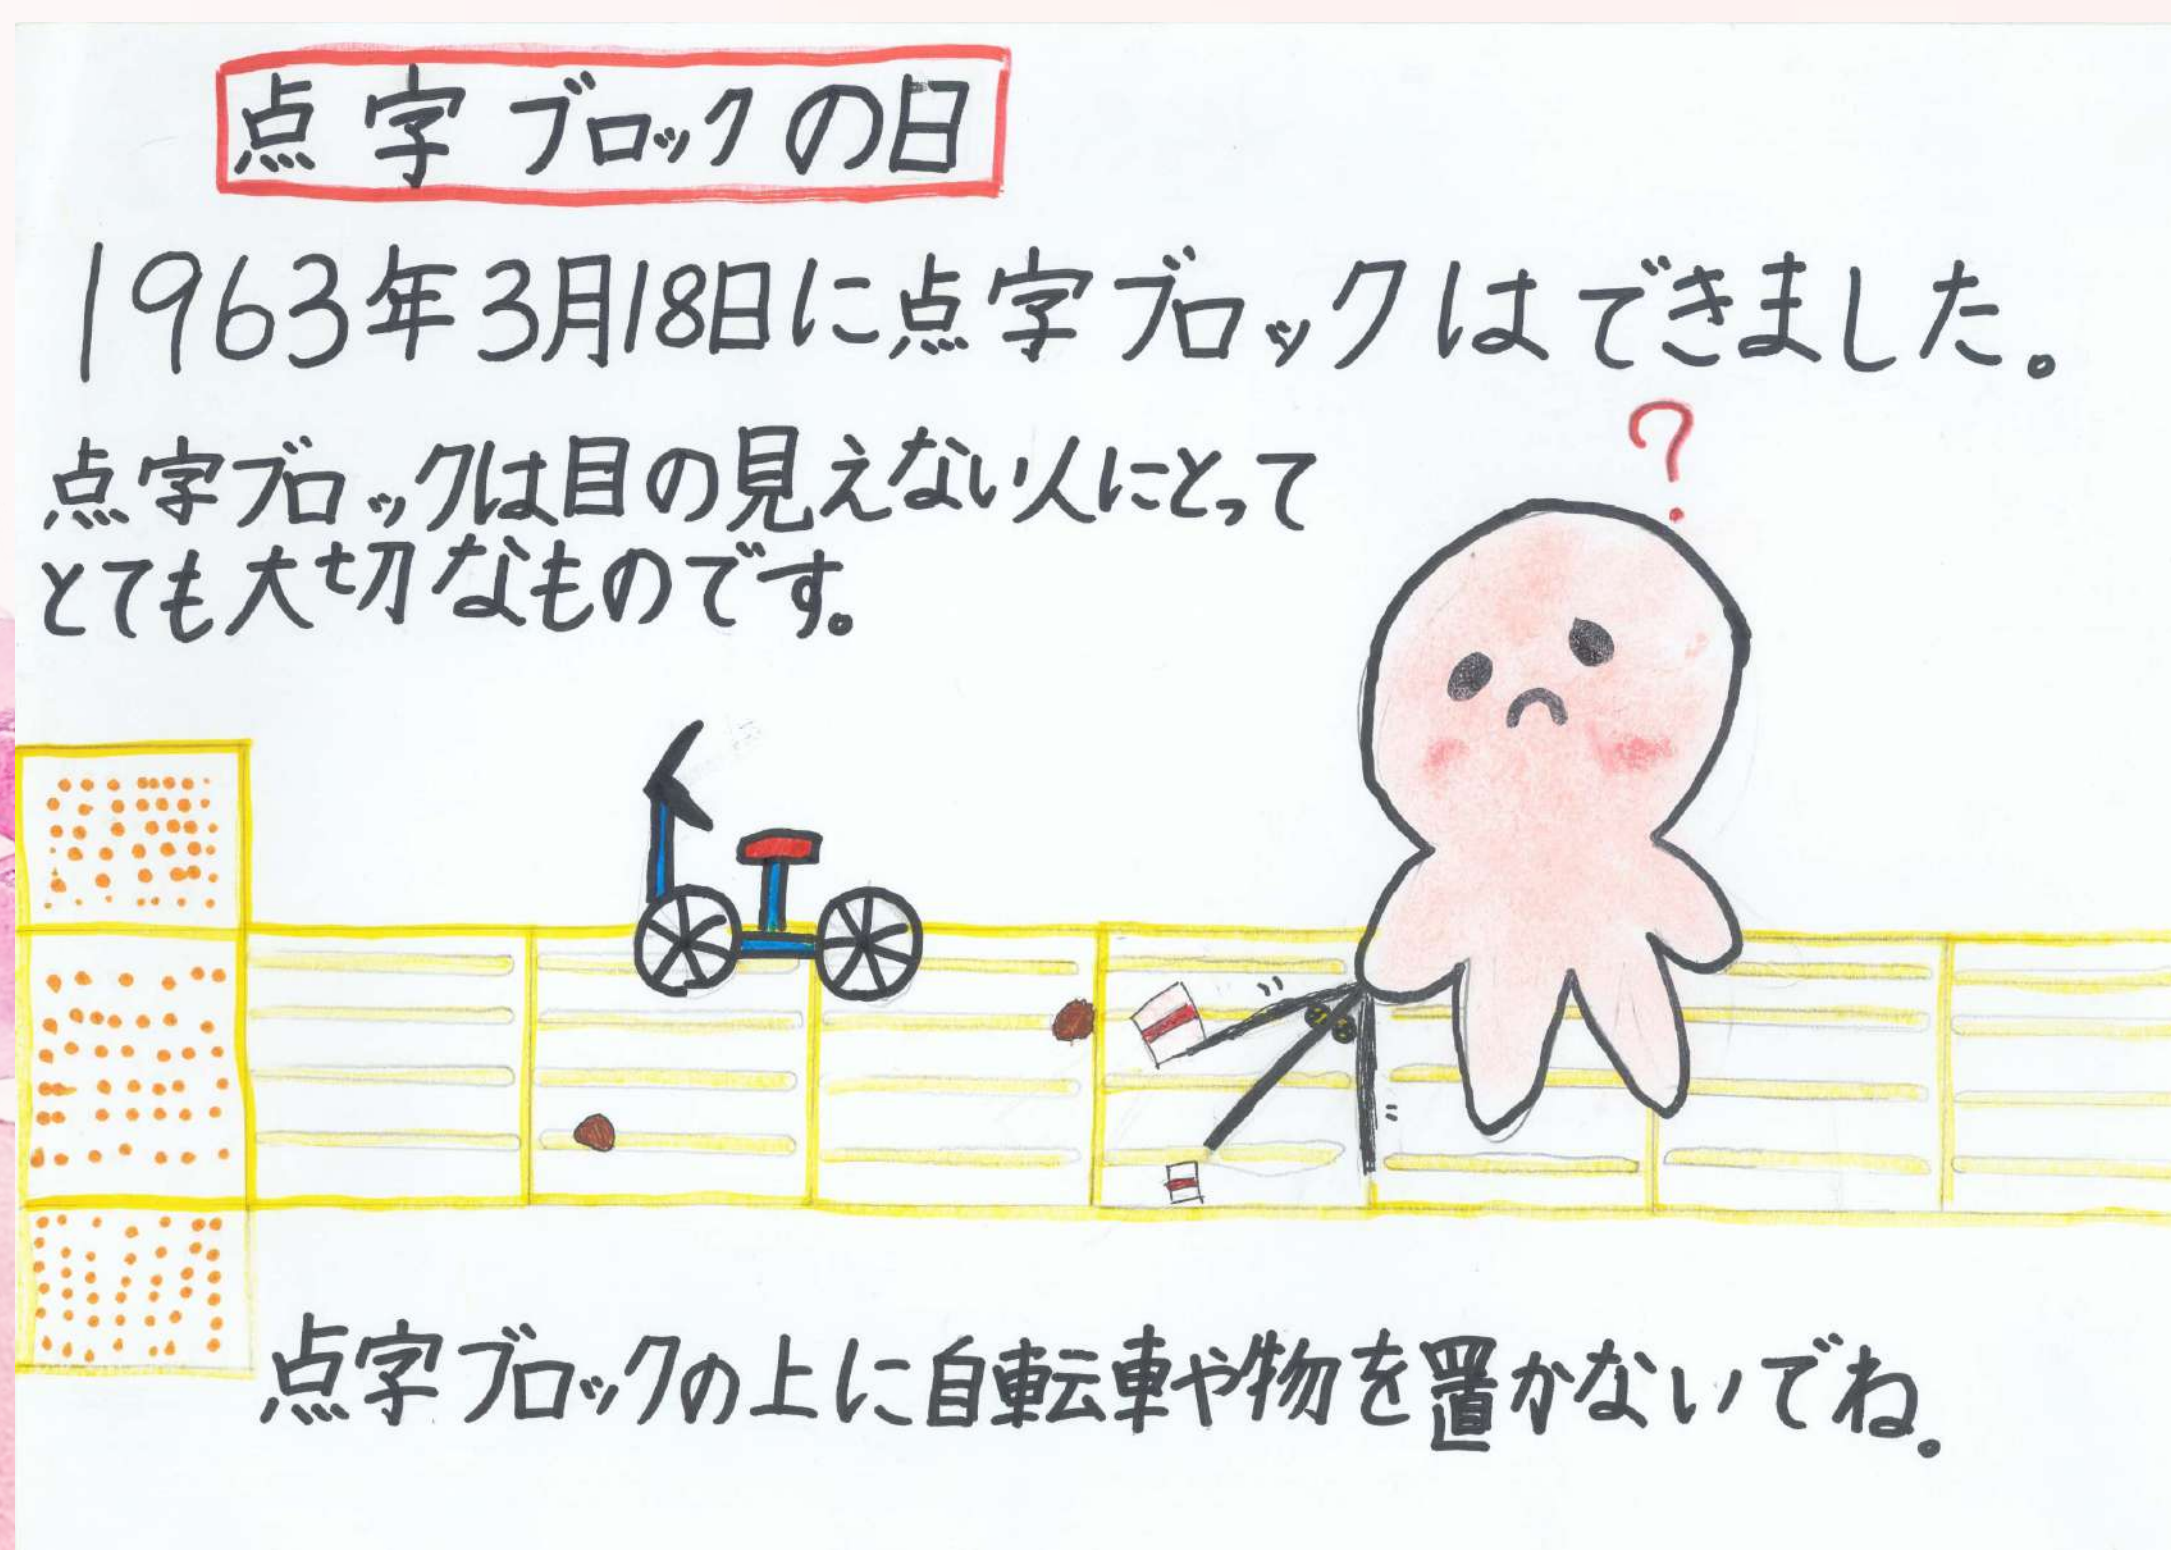 点字ブロックの日
1963年3月18日に点字ブロックはできました。
?
点字ブロックは目の見えない人にとって
とても大切なものです。
点字ブロックの上に自転車や物を置かないでね。